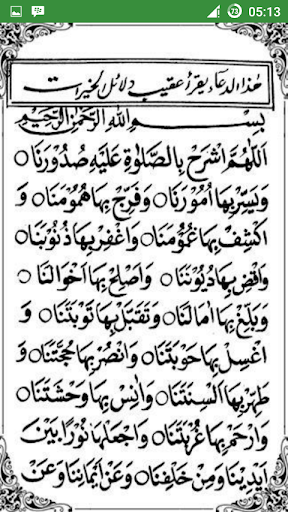 05:13
هٰذا الدعاء يقرأ عقيب دلائل الخيرات
بِسْمِ اللهِ الرَّحْمٰنِ الرَّحِيْمِ
اَللّٰهُمَّ اشْرَحْ بِالصَّلٰوةِ عَلَيْهِ صُدُوْرَنَا
وَيَسِّرْ بِهَا اُمُوْرَنَا وَفَرِّجْ بِهَا هُمُوْمَنَا وَ
اكْشِفْ بِهَا غُمُوْمَنَا وَاغْفِرْ بِهَا ذُنُوْبَنَا
وَاقْضِ بِهَا دُيُوْنَنَا وَاَصْلِحْ بِهَا اَحْوَالَنَا
وَبَلِّغْ بِهَا اٰمَالَنَا وَتَقَبَّلْ بِهَا تَوْبَتَنَا وَ
اغْسِلْ بِهَا حَوْبَتَنَا وَانْصُرْ بِهَا حُجَّتَنَا وَ
طَهِّرْ بِهَا اَلْسِنَتَنَا وَاٰنِسْ بِهَا وَحْشَتَنَا
وَارْحَمْ بِهَا غُرْبَتَنَا وَاجْعَلْهَا نُوْرًا بَيْنَ
اَيْدِيْنَا وَمِنْ خَلْفِنَا وَعَنْ اَيْمَانِنَا وَعَنْ